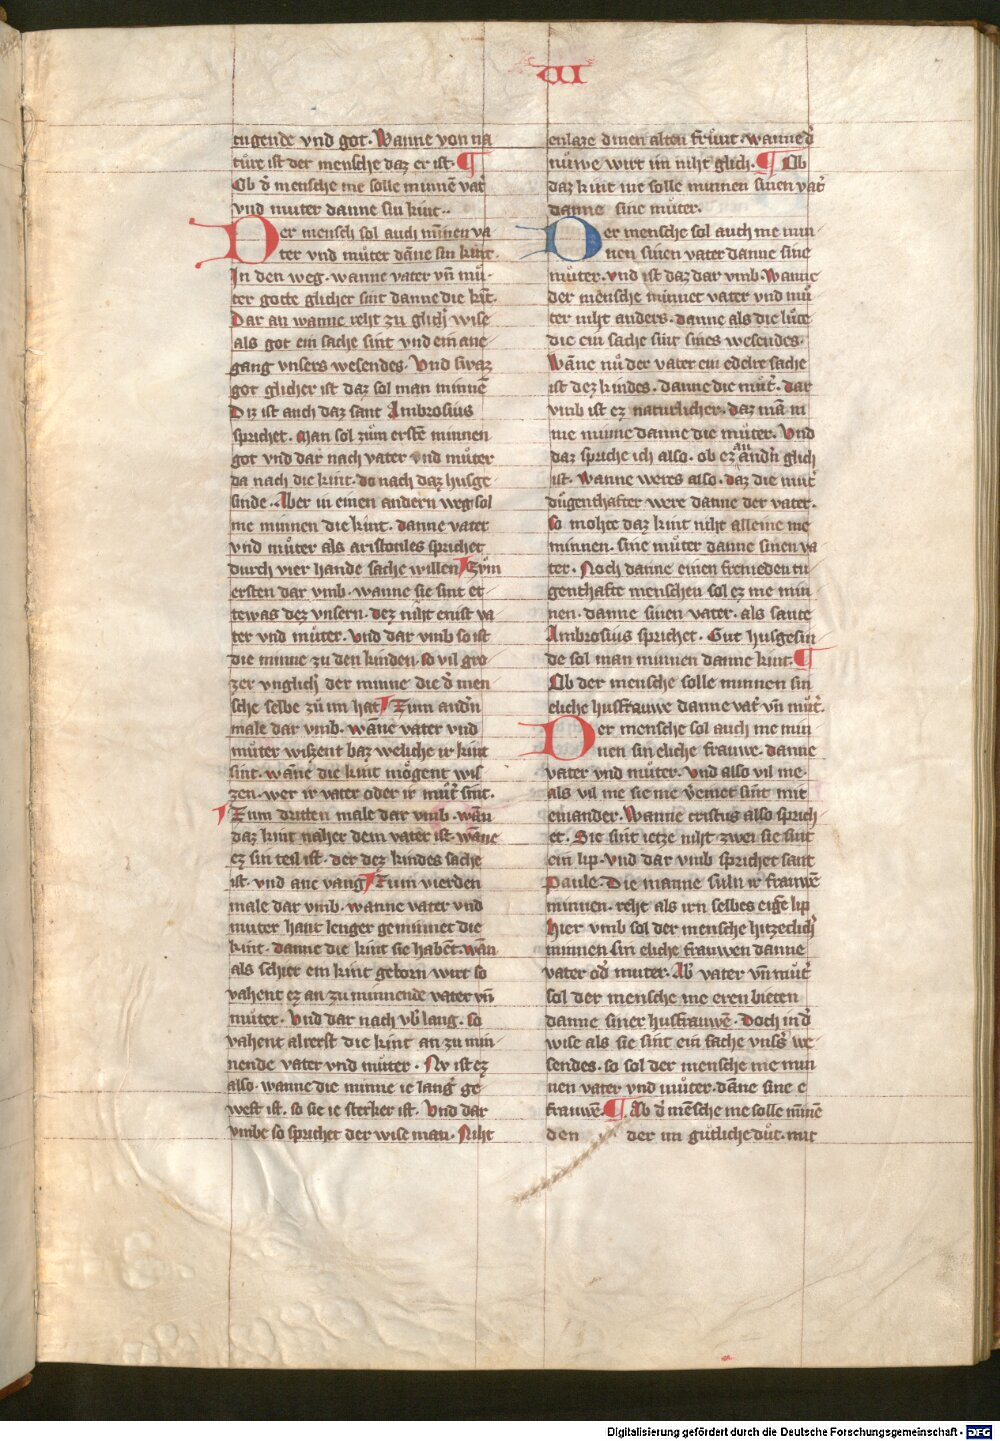 VI
tugende vnd got. Wanne von na
tůre ist der mensche daz er ist. ¶
Ob d̾ mensche me solle minnē vat̾
vnd muter danne sin kint..
Der mensch sol auch mīnen va
ter vnd můter dāne sin kint.
In den weg. wanne vater vn̄ mů
ter gotte glicher sint danne die kīt.
Dar an wanne reht zu glich̾ wise
als got ein sache sint vnd ein ane
gang vnsers wesendes. Vnd swaz
got glicher ist daz sol man minnē
Diz ist auch daz sant Ambrosius
sprichet. Man sol zům erstē minnen
got vnd dar nach vater vnd můter
da nach die kint. do nach daz husge
sinde. Aber in einen andern weg sol
me minnen die kint. danne vater
vnd můter als aristotiles sprichet
durch vier hande sache willen ¶ Zům
ersten dar vmb. wanne sie sint et
tewas dez vnsern. dez niht enist va
ter vnd můter. Vnd dar vmb so ist
die minne zu den kinden. so vil gro
zer vnglich̾ der minne die d̾ men
sche selbe zů im hat ¶ Zum and̾n
male dar vmb. wāne vater vnd
můter wizzent baz weliche ir kint
sint. wāne die kint mögent wis
zen. wer ir vater oder ir můt̾ sint.
¶ Zum dritten male dar vmb. wān
daz kint naher dem vater ist. wāne
ez sin teil ist. der dez kindes sache
ist. vnd ane vang ¶ Zum vierden
male dar vmb. wanne vater vnd
muter hant lenger geminnet die
kint. danne die kint sie habēt. wān
als schier ein kint geborn wirt so
vahent ez an zu minnende vater vn̄
můter. Vnd dar nach vb̾ lang. so
vahent alrerst die kint an zu min
nende vater vnd můter. Nv ist ez
also. wanne die minne ie lang̾ ge
west ist. so sie ie sterker ist. Vnd dar
vmbe so sprichet der wise man. Niht
enlaze dinen alten frůnt. wanne d̾
nůwe wirt im niht glich. ¶ Ob
daz kint me solle minnen sinen vat̾
danne sine můter.
Der mensche sol auch me min
nen sinen vater danne sine
můter. vnd ist daz dar vmb. Wanne
der mensche minnet vater vnd mů
ter niht anders. danne als die lůte
die ein sache sint sines wesendes.
Wāne nů der vater ein edelre sache
ist dez kindes. danne die můt̾. dar
vmb ist ez naturlicher. daz mā in
me minne danne die můter. Vnd
daz spriche ich also. ob ez an and̾n glich
ist. Wanne weres also. daz die mut̾
důgenthafter were danne der vater.
so mohte daz kint niht alleine me
minnen. sine můter danne sinen va
ter. Noch danne einen fremeden tu
genthafte menschen sol ez me min
nen. danne sinen vater. als sante
Ambrosius sprichet. Gut husgesin
de sol man minnen danne kint. ¶
Ob der mensche solle minnen sin
eliche husfrauwe danne vat̾ vn̄ můt̾.
Der mensche sol auch me min
nen sin eliche frauwe. danne
vater vnd můter. vnd also vil me.
als vil me sie me v̾einet sint mit
einander. Wanne cristus also sprich
et. Sie sint ietze niht. zwei sie sint
ein lip. vnd dar vmb sprichet sant
Paule. Die manne suln ir frauwē
minnen. reht als irn selbes eigē lip
Hier vmb sol der mensche hitzeclich̾
minnen sin eliche frauwen danne
vater od̾ muter. Ab̾ vater vn̄ můt̾
sol der mensche me eren bieten
danne siner husfrauwē. Doch in d̾
wise als sie sint ein sache vns̾s we
sendes. so sol der mensche me min
nen vater vnd můter. dāne sine e
frauwē. ¶ Ab d̾ mēsche me solle mīnē
den der im gůtliche důt. mit
Digitalisierung gefördert durch die Deutsche Forschungsgemeinschaft - DFG